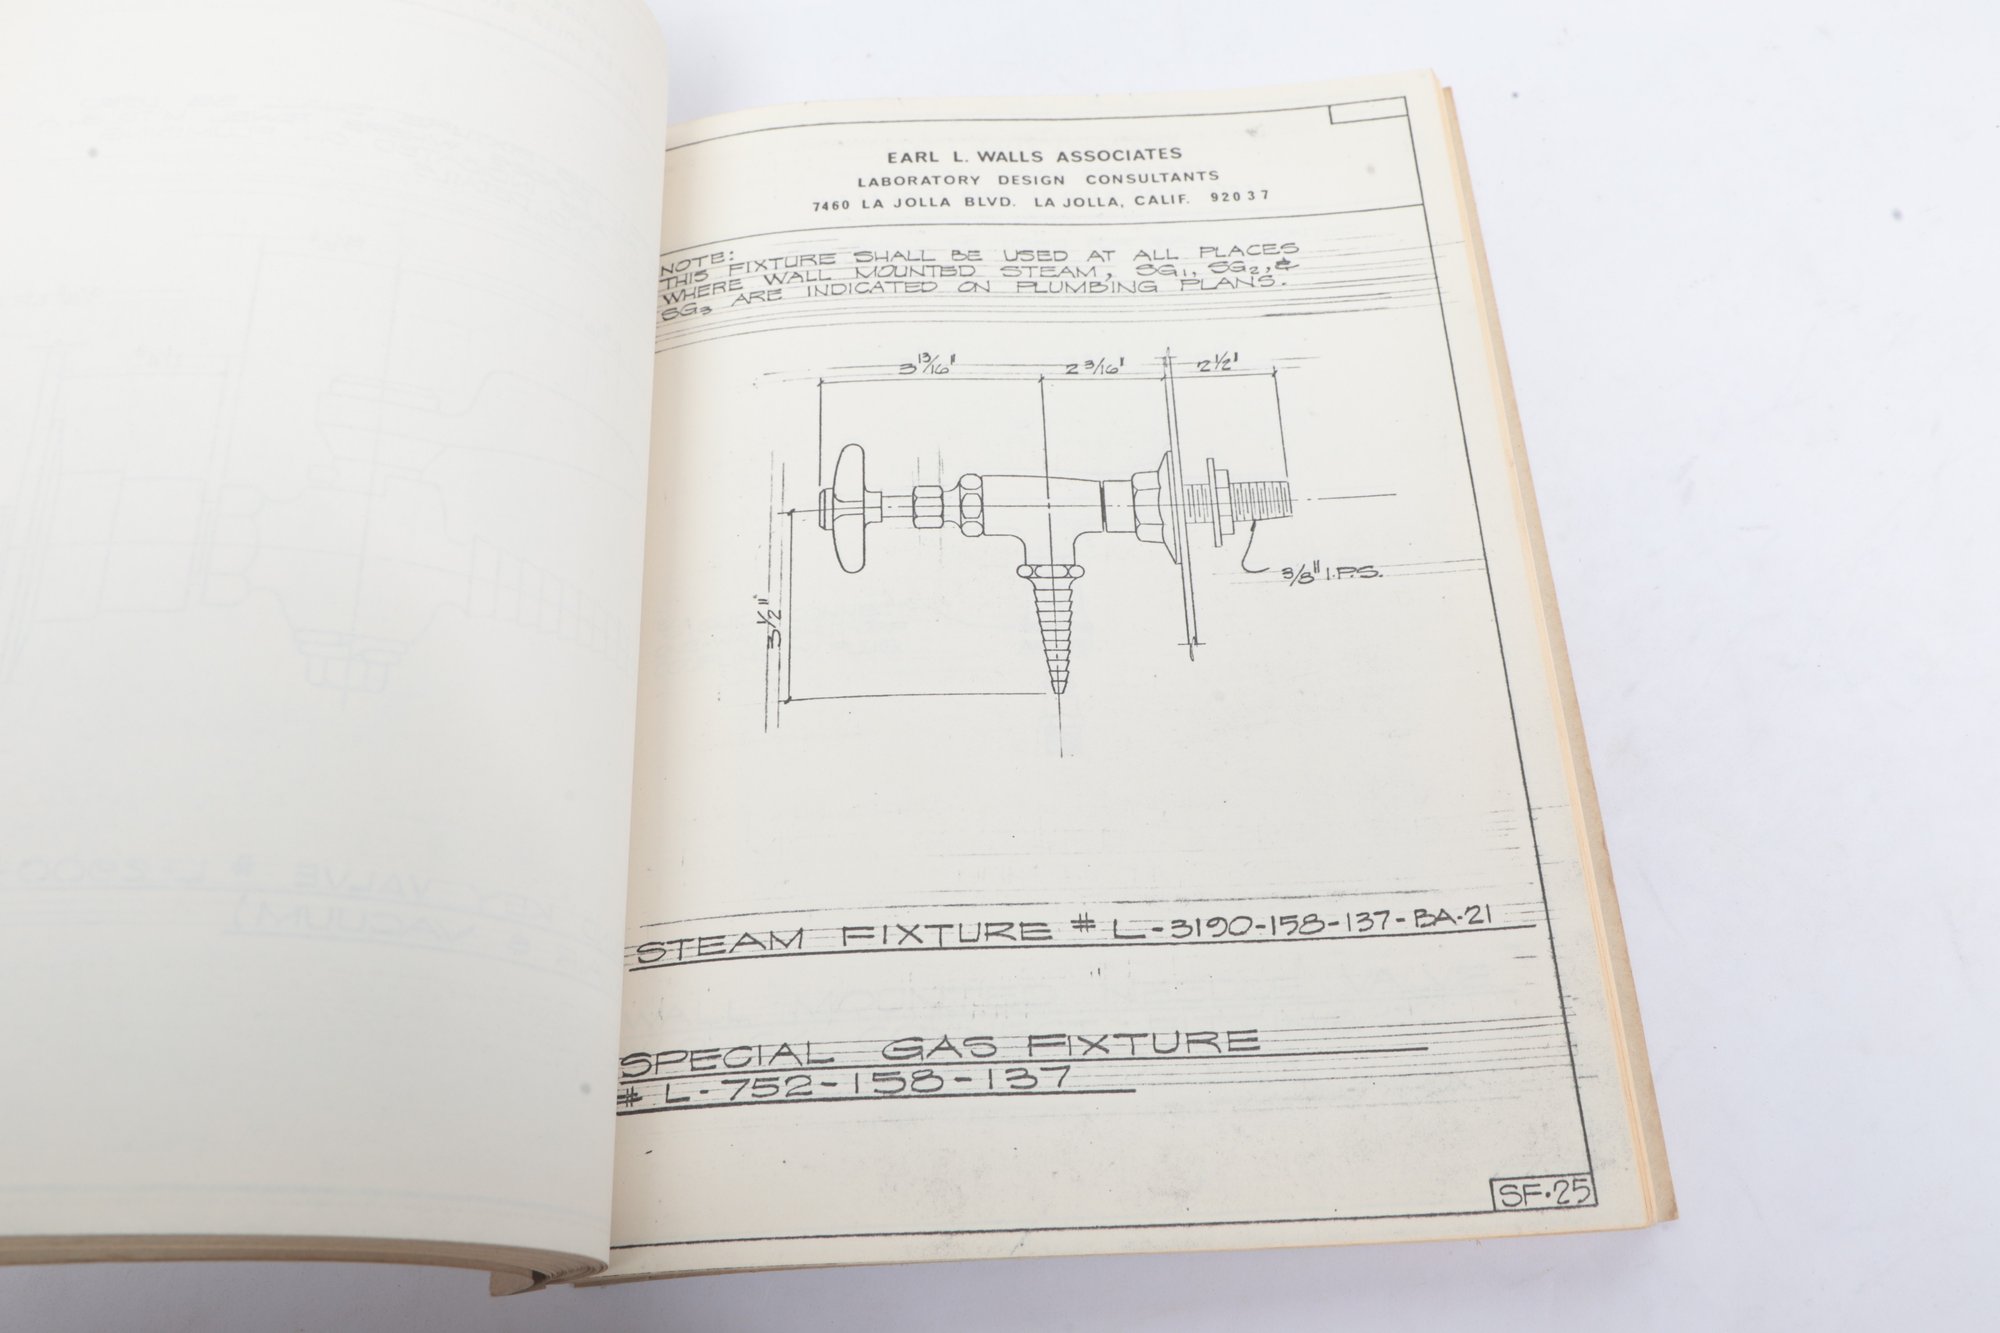 EARL L. WALLS ASSOCIATES
LABORATORY DESIGN CONSULTANTS
7460 LA JOLLA BLVD. LA JOLLA, CALIF. 92037
NOTE:
THIS FIXTURE SHALL BE USED AT ALL PLACES
WHERE WALL MOUNTED STEAM, SG1, SG2, &
SG3 ARE INDICATED ON PLUMBING PLANS.
3 13/16" 2 3/16" 2 1/2"
3/8" I.P.S.
3 1/2"
STEAM FIXTURE # L-3190-158-137-BA-21
SPECIAL GAS FIXTURE
# L-752-158-137
SF-25
KEY VALVE # L-2900
& VACUUM)